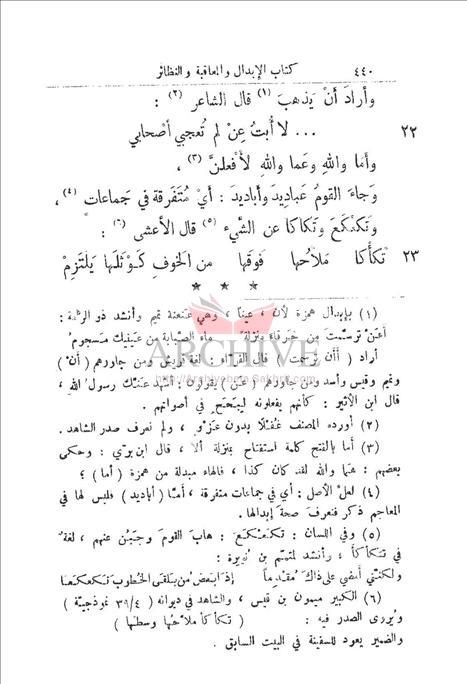 ٤٤٠ كتاب الإبدال والمعاقبة والنظائر
وأرادَ أنْ يَذهبَ (١) قال الشاعر (٢) :
٢٢ ... لا أُبتُ عِنْ لم تُعجبي أصْحابي
وأمَا واللهِ وعَما واللهِ لأفعلنَّ (٣) ،
وجاءَ القومُ عَباديدَ وأباديدَ : أيْ مُتفرقة في جماعات (٤) ،
وتكعكعَ وتكأكأ عن الشيء (٥) قال الأعشى (٦) :
٢٣ تكأكأ ملاحُها فوقها من الخوفِ كوثلَها يلتزمْ
* * *
(١) بإبدال همزة لأن ، عيناً ، وهي عنعنة تميم وأنشد ذو الرمّة :
أعَنْ ترسّمتَ من خرقاءَ منزلةً ماءُ الصبابة من عينيك مسجومُ
أراد ( أأن ترسمت ) قال الفراء : لغة قريش ومن جاورهم ( أن )
وتميم وقيس وأسد ومن جاورهم ( عن ) يقولون : أشهد عنّك رسولُ الله ،
قال ابن الأثير : كأنهم يفعلونه لبَحَحٍ في أصواتهم .
(٢) أورده المصنف غُفلًا بدون عَزْوٍ ، ولم نعرف صدر الشاهد .
(٣) أما بالفتح كلمة استفتاح بمنزلة ألا ، قال ابن برّي : وحكى
بعضهم : هَمَا والله لقد كان كذا ، فالهاء مبدلة من همزة ( أما ) ؛
(٤) لعل الأصل : أي في جماعات متفرقة ، أمّا ( أباديد ) فليس لها في
المعاجم ذكر فنعرف صحة إبدالها .
(٥) وفي اللسان : تكعكع : هابَ القومَ وجبُنَ عنهم ، لغة
في تكأكأ ، وأنشد لمتمم بن نويرة :
ولكنني أمضي على ذاك مُقدِماً إذا بعضُ من يلقى الخطوب تكعكعا
(٦) الكبير ميمون بن قيس ، والشاهد في ديوانه ( ٣٩/٤ نموذجية )
ويُروى الصدر فيه : ( تكأكأ ملاحُها وسطها )
والضمير يعود للسفينة في البيت السابق .
ARCHIVE